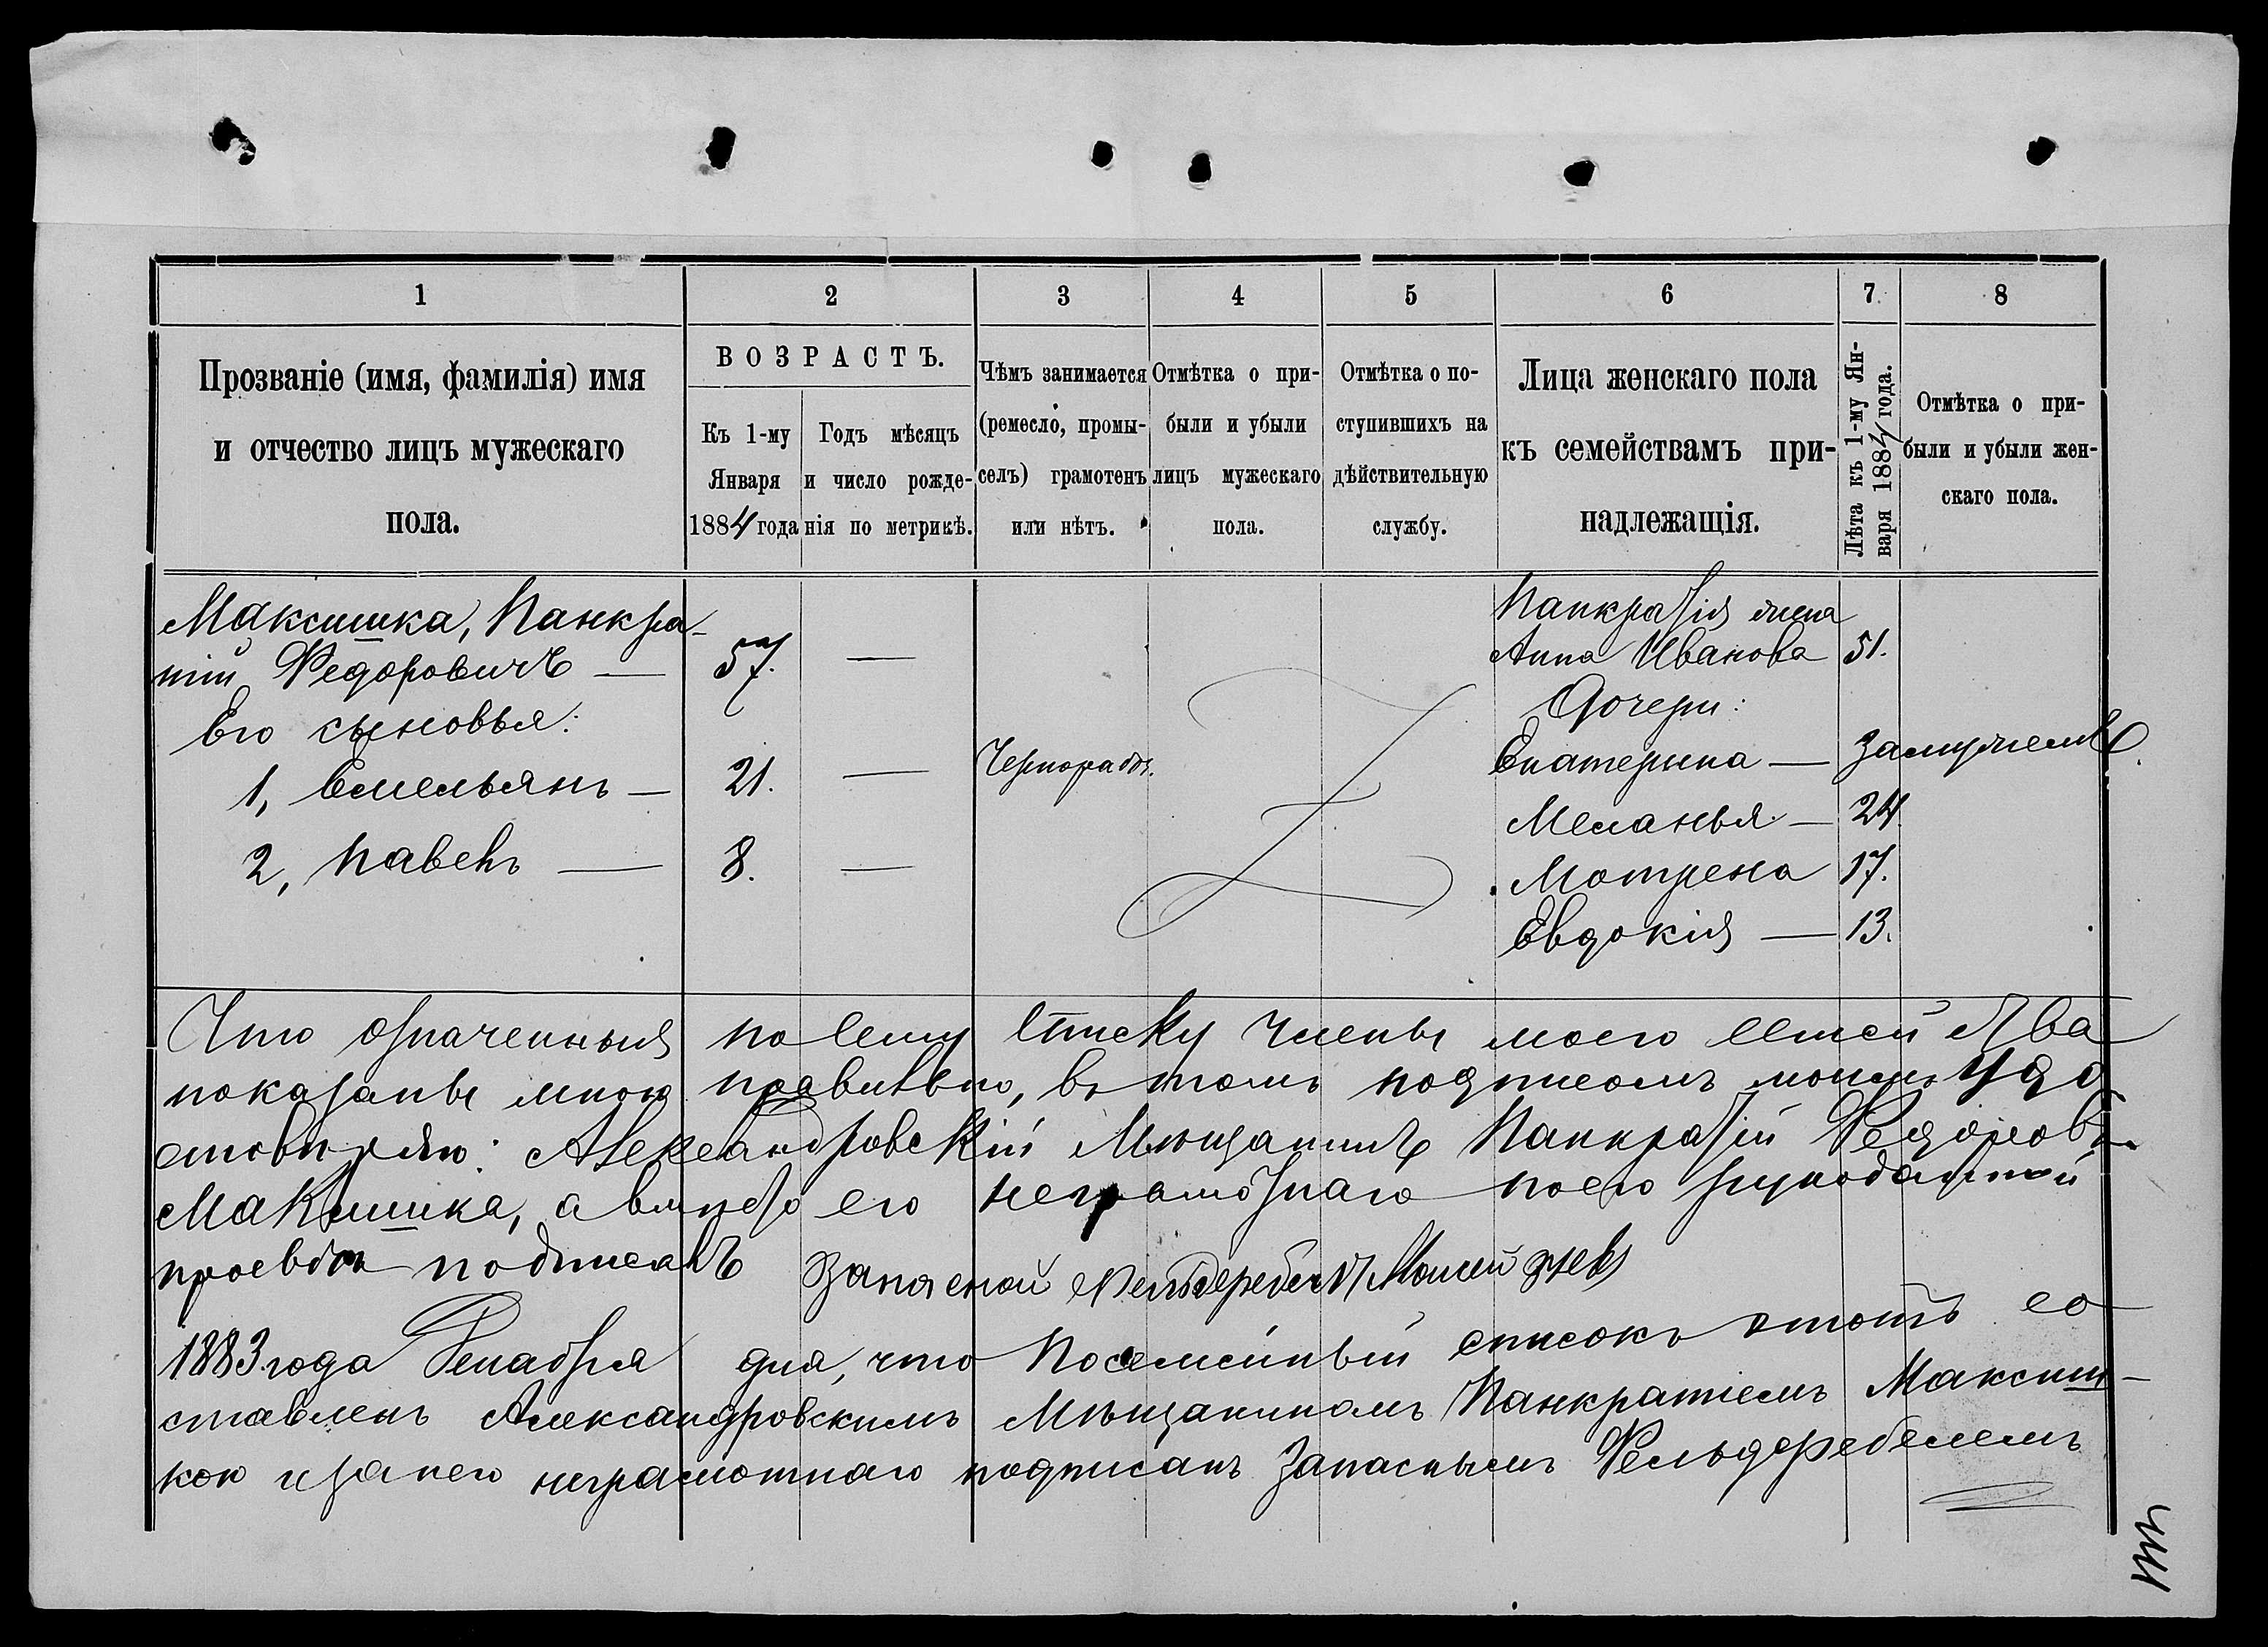 1 2 3 4 5 6 7 8
Прозваніе (имя, фамилія) имя
и отчество лицъ мужескаго
пола.
ВОЗРАСТЪ.
Къ 1-му
Января
1884 года
Годъ мѣсяцъ
и число рожде-
нія по метрикѣ.
Чѣмъ занимается
(ремесло, промы-
селъ) грамотенъ
или нѣтъ.
Отмѣтка о при-
были и убыли
лицъ мужескаго
пола.
Отмѣтка о по-
ступившихъ на
дѣйствительную
службу.
Лица женскаго пола
къ семействамъ при-
надлежащія.
Лѣта къ 1-му Ян-
варя 1884 года.
Отмѣтка о при-
были и убыли жен-
скаго пола.
Максишка, Панкра-
тій Федоровичъ — 57. —
Его сыновья:
1, Емельянъ — 21. — Чернорабоч.
2, Павелъ — 8. —
Панкратія жена
Анна Иванова 51.
Дочери:
Екатерина — замужемъ
Меланья — 24.
Мотрена 17.
Евдокія — 13.
Что означенныя по сему списку члены моего семейства
показаны мною правильно, въ томъ подписомъ моимъ удо
стовѣряю: Александровскій Мѣщанинъ Панкратій Федоровъ
Максишка, а вместо его неграмотнаго по его рукодатной
прозьбѣ подписалъ Запасной Фельдфебель
1883 года Декабря дня, что Посемейный списокъ этотъ со
ставленъ Александровскимъ Мѣщаниномъ Панкратіемъ Максиш-
кою и за него неграмотнаго подписанъ Запаснымъ Фельдфебелемъ